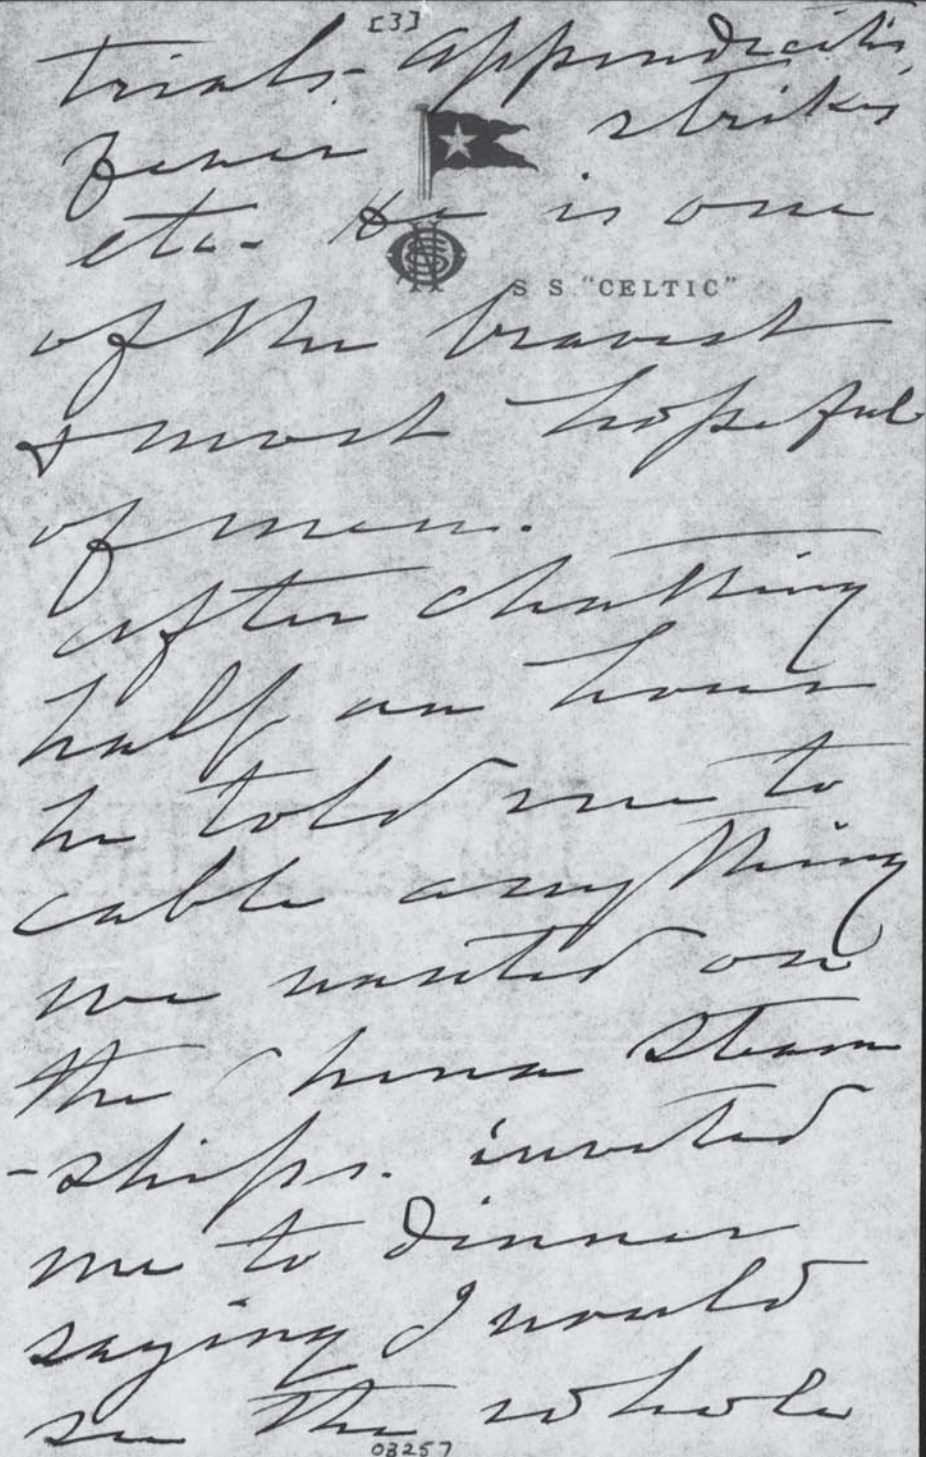 [3]
trials- appendicitis,
fever strikes
etc- He is one
S S "CELTIC"
of the bravest
& most hopeful
of men.
After chatting
half an hour
he told me to
cable anything
we wanted on
the China Steam
-ships. invited
me to dinner
saying I would
see the whole
03257